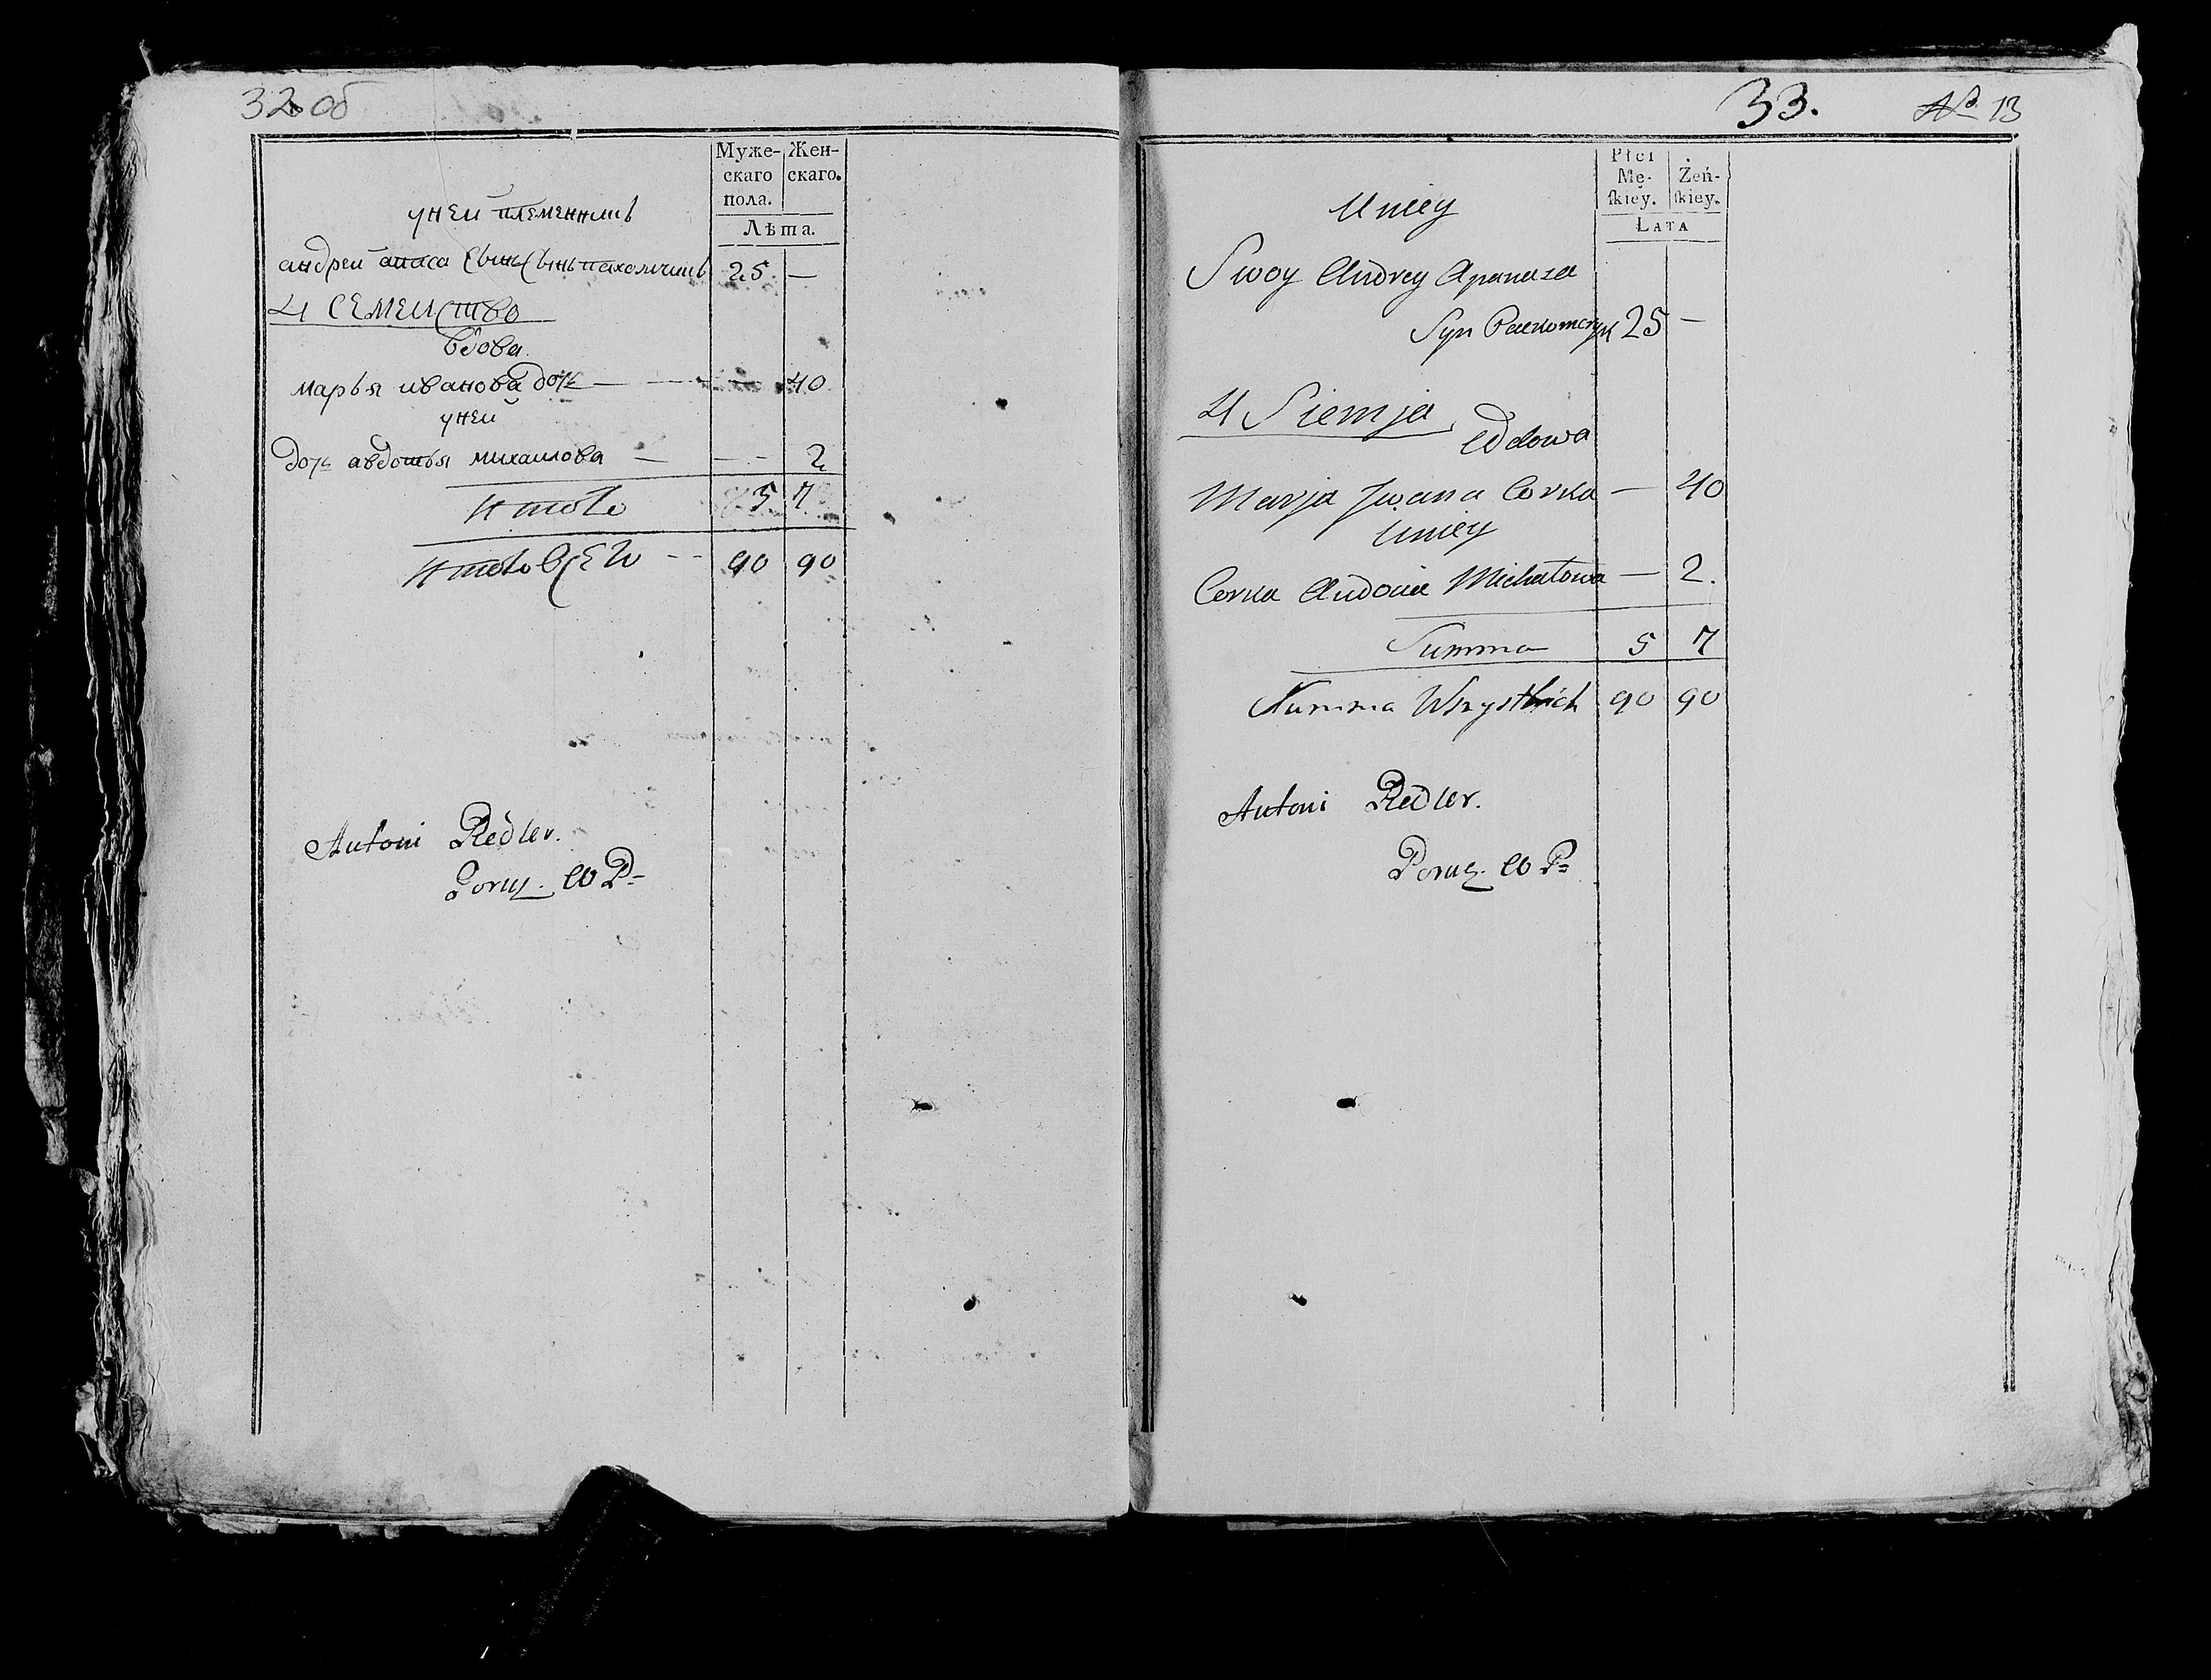 32 об
Муже-
скаго
пола.
Жен-
скаго.
Лѣта.
у неи племенникъ
андреи апаса сынъ 25 —
4 семеиство
вдова
марья иванова дочь — — 40
у неи
дочь авдотья михаилова — — 2
Итого 5 7
Итого всего 90 90
Antoni Redler.
Porucz. W P
33. № 13
Płci
Mę-
ſkiey.
Żeń-
ſkiey.
Lata
Uniey
Swoy Andrey Apanasa
Syn 25 —
4 Siemja
Wdowa
Marja Jwana Corka — 40
Uniey
Corka Audocia Michałowa — 2.
Summa 5 7
Summa Wszystkich 90 90
Antoni Redler.
Porucz. W P